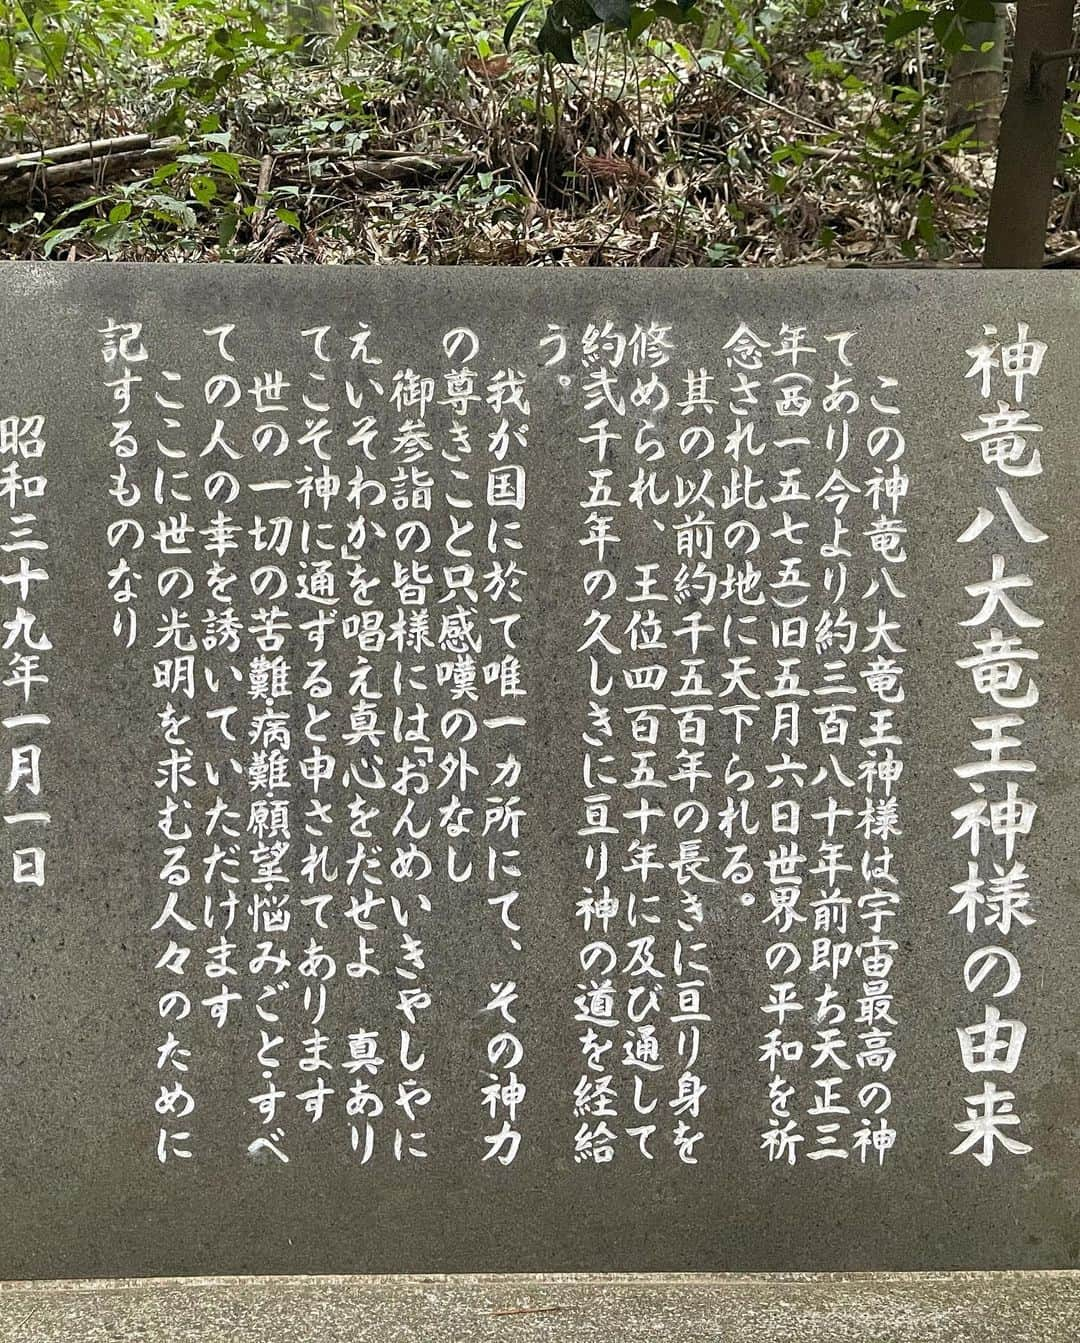 神竜八大竜王神様の由来
この神竜八大竜王神様は宇宙最高の神
てあり今より約三百八十年前即ち天正三
年(西一五七五)旧五月六日世界の平和を祈
念され此の地に天下られる。
其の以前約千五百年の長きに亘り身を
修められ、王位四百五十年に及び通して
約弐千五年の久しきに亘り神の道を経給
う。
我が国に於て唯一ヵ所にて、その神力
の尊きこと只感嘆の外なし
御参詣の皆様には「おんめいきやしやに
えいそわか」を唱え真心をだせよ 真あり
てこそ神に通ずると申されてあります
世の一切の苦難・病難願望・悩みごと・すべ
ての人の幸を誘いていただけます
ここに世の光明を求むる人々のために
記するものなり
昭和三十九年一月一日